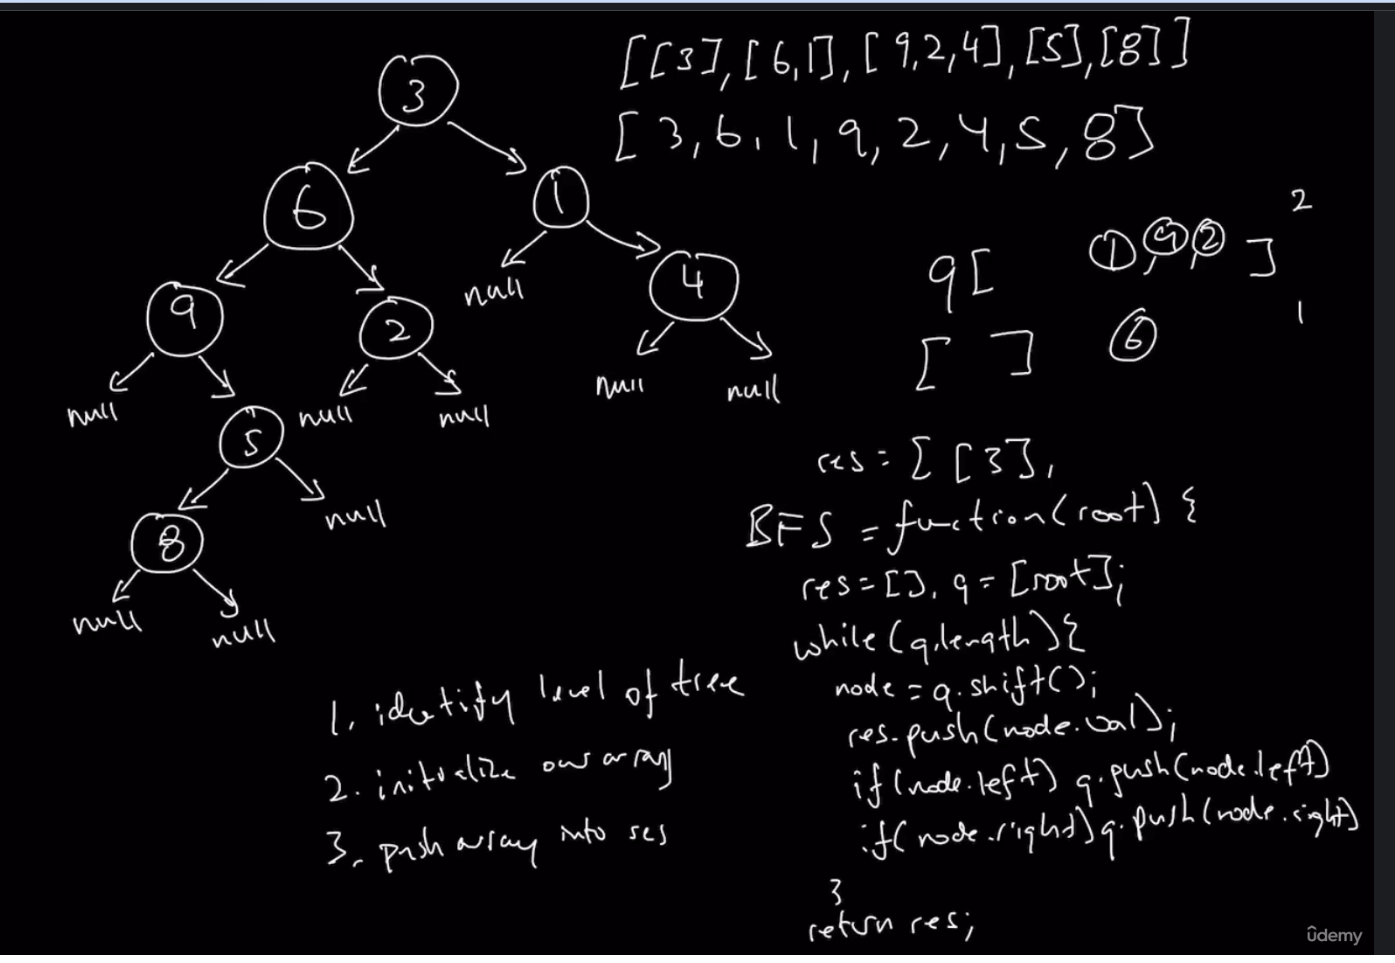 [[3],[6,1],[9,2,4],[5],[8]]
[3,6,1,9,2,4,5,8]
3
6
1
9
2
null
4
null
5
null
null
null
null
8
null
null
null
q[ 1,9,2 ] 2
[ ] 6 1
res = [ [3],
BFS = function(root) {
res = [], q = [root];
while (q.length) {
node = q.shift();
res.push(node.val);
if (node.left) q.push(node.left)
if (node.right) q.push(node.right)
}
return res;
1. identify level of tree
2. initialize our array
3. push array into res
ûdemy